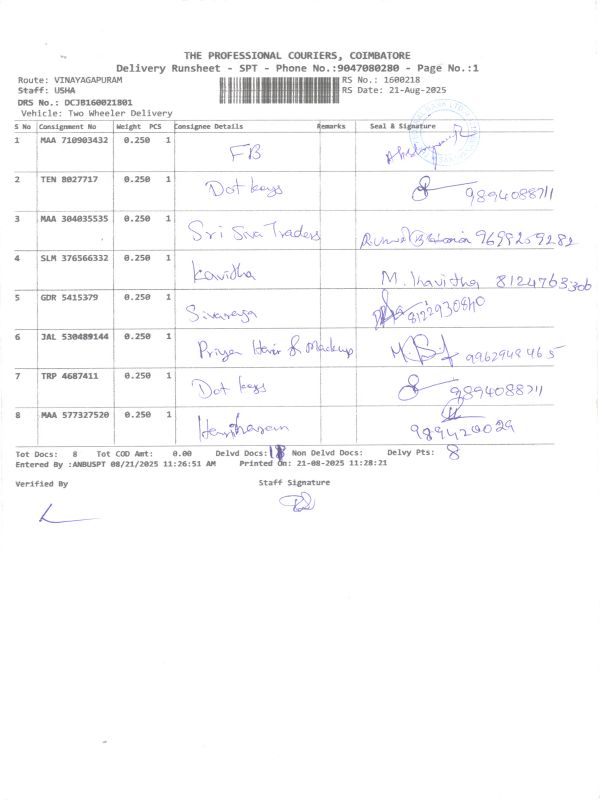 THE PROFESSIONAL COURIERS, COIMBATORE
Delivery Runsheet - SPT - Phone No.:9047080280 - Page No.:1
Route: VINAYAGAPURAM RS No.: 1600218
Staff: USHA RS Date: 21-Aug-2025
DRS No.: DCJB160021801
Vehicle: Two Wheeler Delivery
S No Consignment No Weight PCS Consignee Details Remarks Seal & Signature
1 MAA 710903432 0.250 1 FB
2 TEN 8027717 0.250 1 Dot keys 9894088711
3 MAA 304035535 0.250 1 Sri Siva Traders 9699259282
4 SLM 376566332 0.250 1 Kavitha M. Kavitha 8124763306
5 GDR 5415379 0.250 1 8122930840
6 JAL 530489144 0.250 1 Priya Hair & Makeup 9962948465
7 TRP 4687411 0.250 1 Dot keys 9894088711
8 MAA 577327520 0.250 1
Tot Docs: 8 Tot COD Amt: 0.00 Delvd Docs: 8 Non Delvd Docs: Delvy Pts: 8
Entered By :ANBUSPT 08/21/2025 11:26:51 AM Printed On: 21-08-2025 11:28:21
Verified By Staff Signature